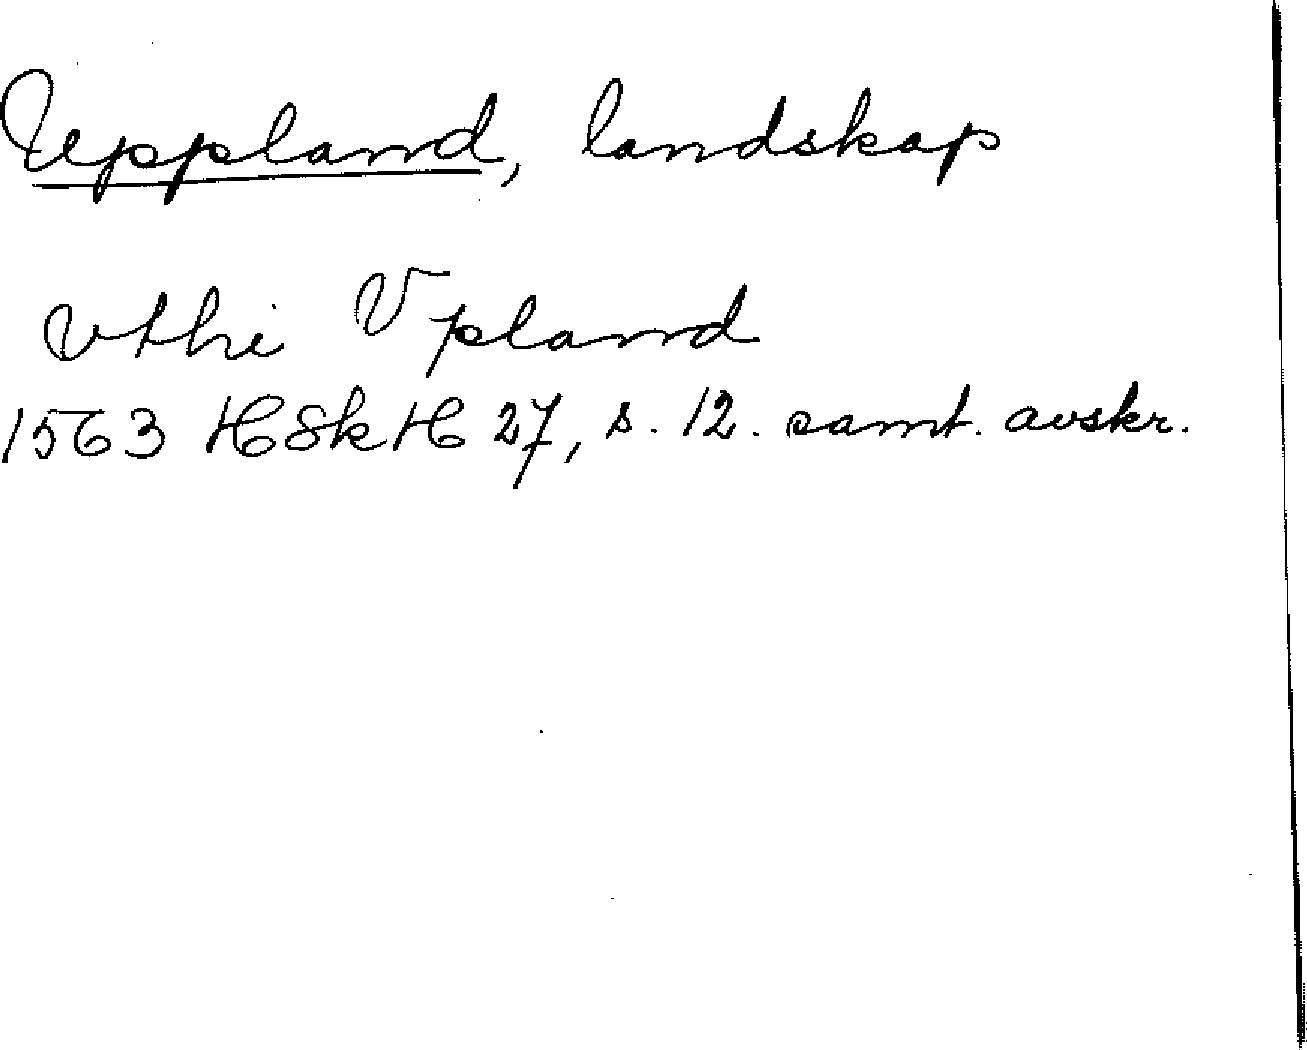 Uppland, landskap
vthi Vpland
1563 HSkH 27, s. 12. samt. avskr.